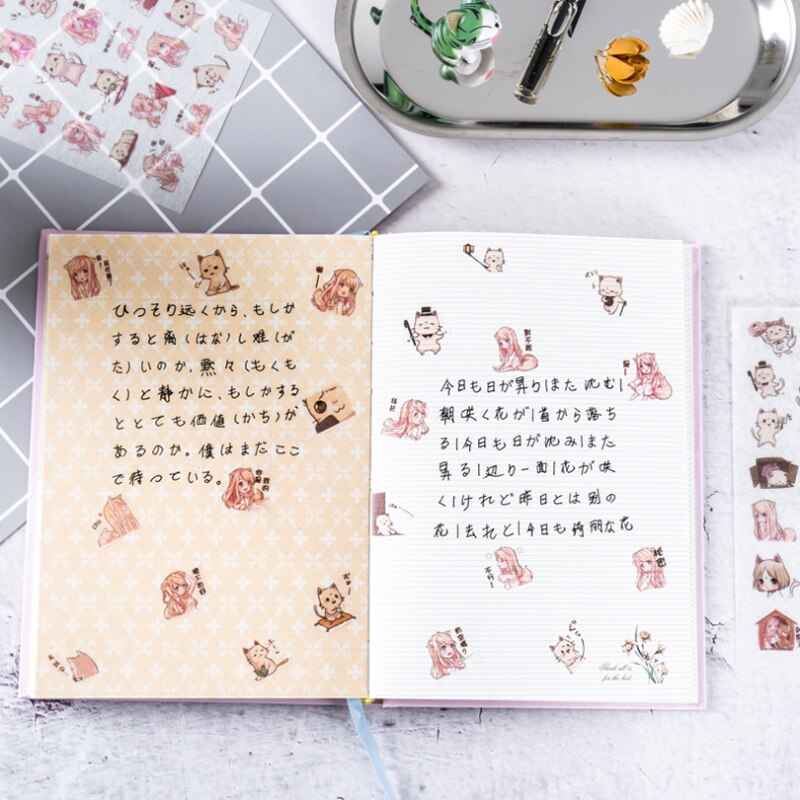 ひっそり远くから、もしか
すると离(はな)し难(が
た)いのか。黙々(もくも
く)と静かに、もしかする
ととても価値(かち)が
あるのか。僕はまだここ
で待っている。
今日も日が昇り|また沈む|
朝咲く花が|首から落ち
る|今日も日が沈み|また
昇る|辺り一面|花が咲
く|けれど昨日とは别の
花|去れど|今日も绮丽な花
Thank all is
for the best